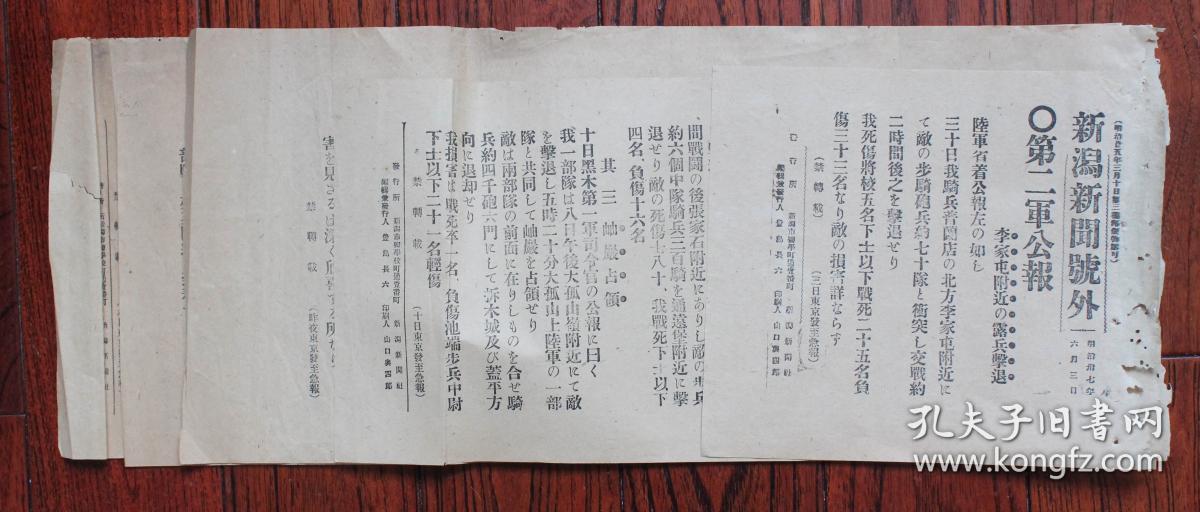 新潟新聞號外
明治卅七年
六月三日
〇第二軍公報
李家屯附近の露兵擊退
陸軍省着公報左の如し
三十日我騎兵普蘭店の北方李家屯附近に
て敵の步騎砲兵約七十隊と衝突し交戰約
二時間後之を擊退せり
我死傷將校五名下士以下戰死二十五名負
傷三十三名なり敵の損害詳ならす
(禁轉載)
(二日東京發至急報)
新潟新聞社
豊島長六
印刷人 山口與四郎
間戰鬪の後張家石附近にありし敵の步兵
約六個中隊騎兵三百騎を通遠堡附近に擊
退せり敵の死傷七八十、我戰死下士以下
四名、負傷十六名
其三 岫巖占領
十日黑木第一軍司令官の公報に曰く
我一部隊は八日午後大孤山嶺附近にて敵
を擊退し五時二十分大孤山上陸軍の一部
隊と共同して岫巖を占領せり
敵は兩部隊の前面に在りしものを合せ騎
兵約四千砲六門にして折木城及び蓋平方
向に退却せり
我損害は戰死卒一名、負傷池端步兵中尉
下士以下二十一名輕傷
禁轉載
(十日東京發至急報)
發行所
新潟新聞社
編輯兼發行人 豊島長六
印刷人 山口與四郎
禁轉載
(昨夜東京發至急報)
孔夫子旧书网
www.kongfz.com